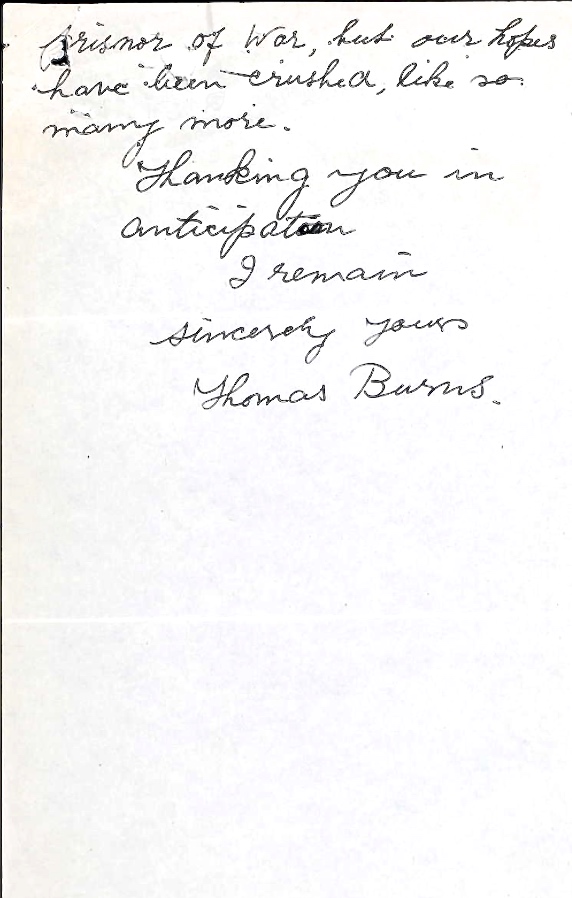 Prisnor of War, but our hopes
have been crushed, like so
many more.
Thanking you in
anticipation
I remain
sincerely yours
Thomas Burns.